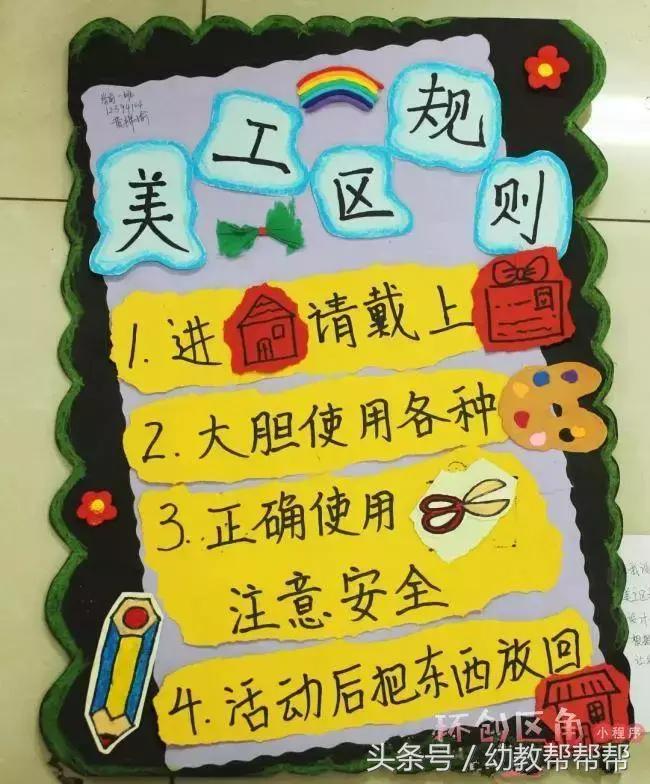 美工区规则
1. 进 请戴上
2. 大胆使用各种
3. 正确使用
注意安全
4. 活动后把东西放回
环创区角 小程序
头条号／幼教帮帮帮